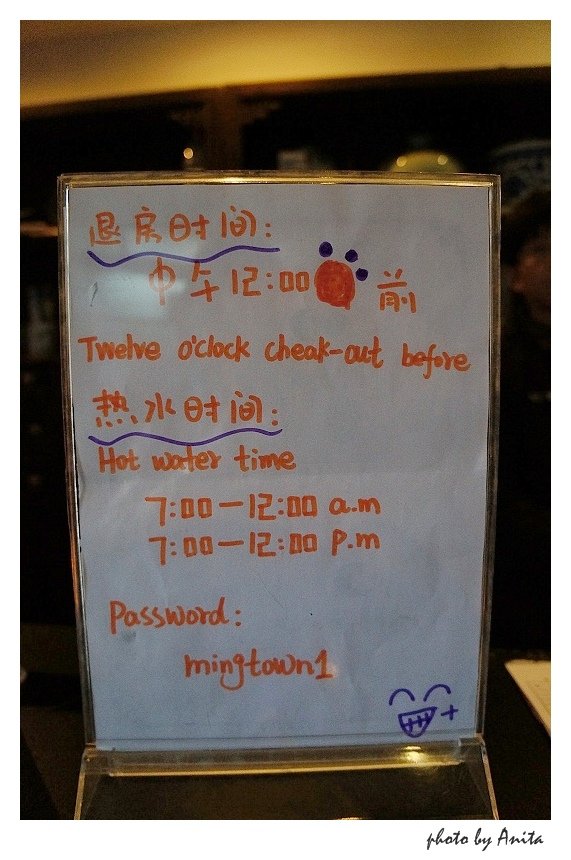 退房时间:
中午12:00前
Twelve o'clock cheak-out before
热水时间:
Hot water time
7:00-12:00 a.m
7:00-12:00 p.m
Password:
mingtown1
photo by Anita